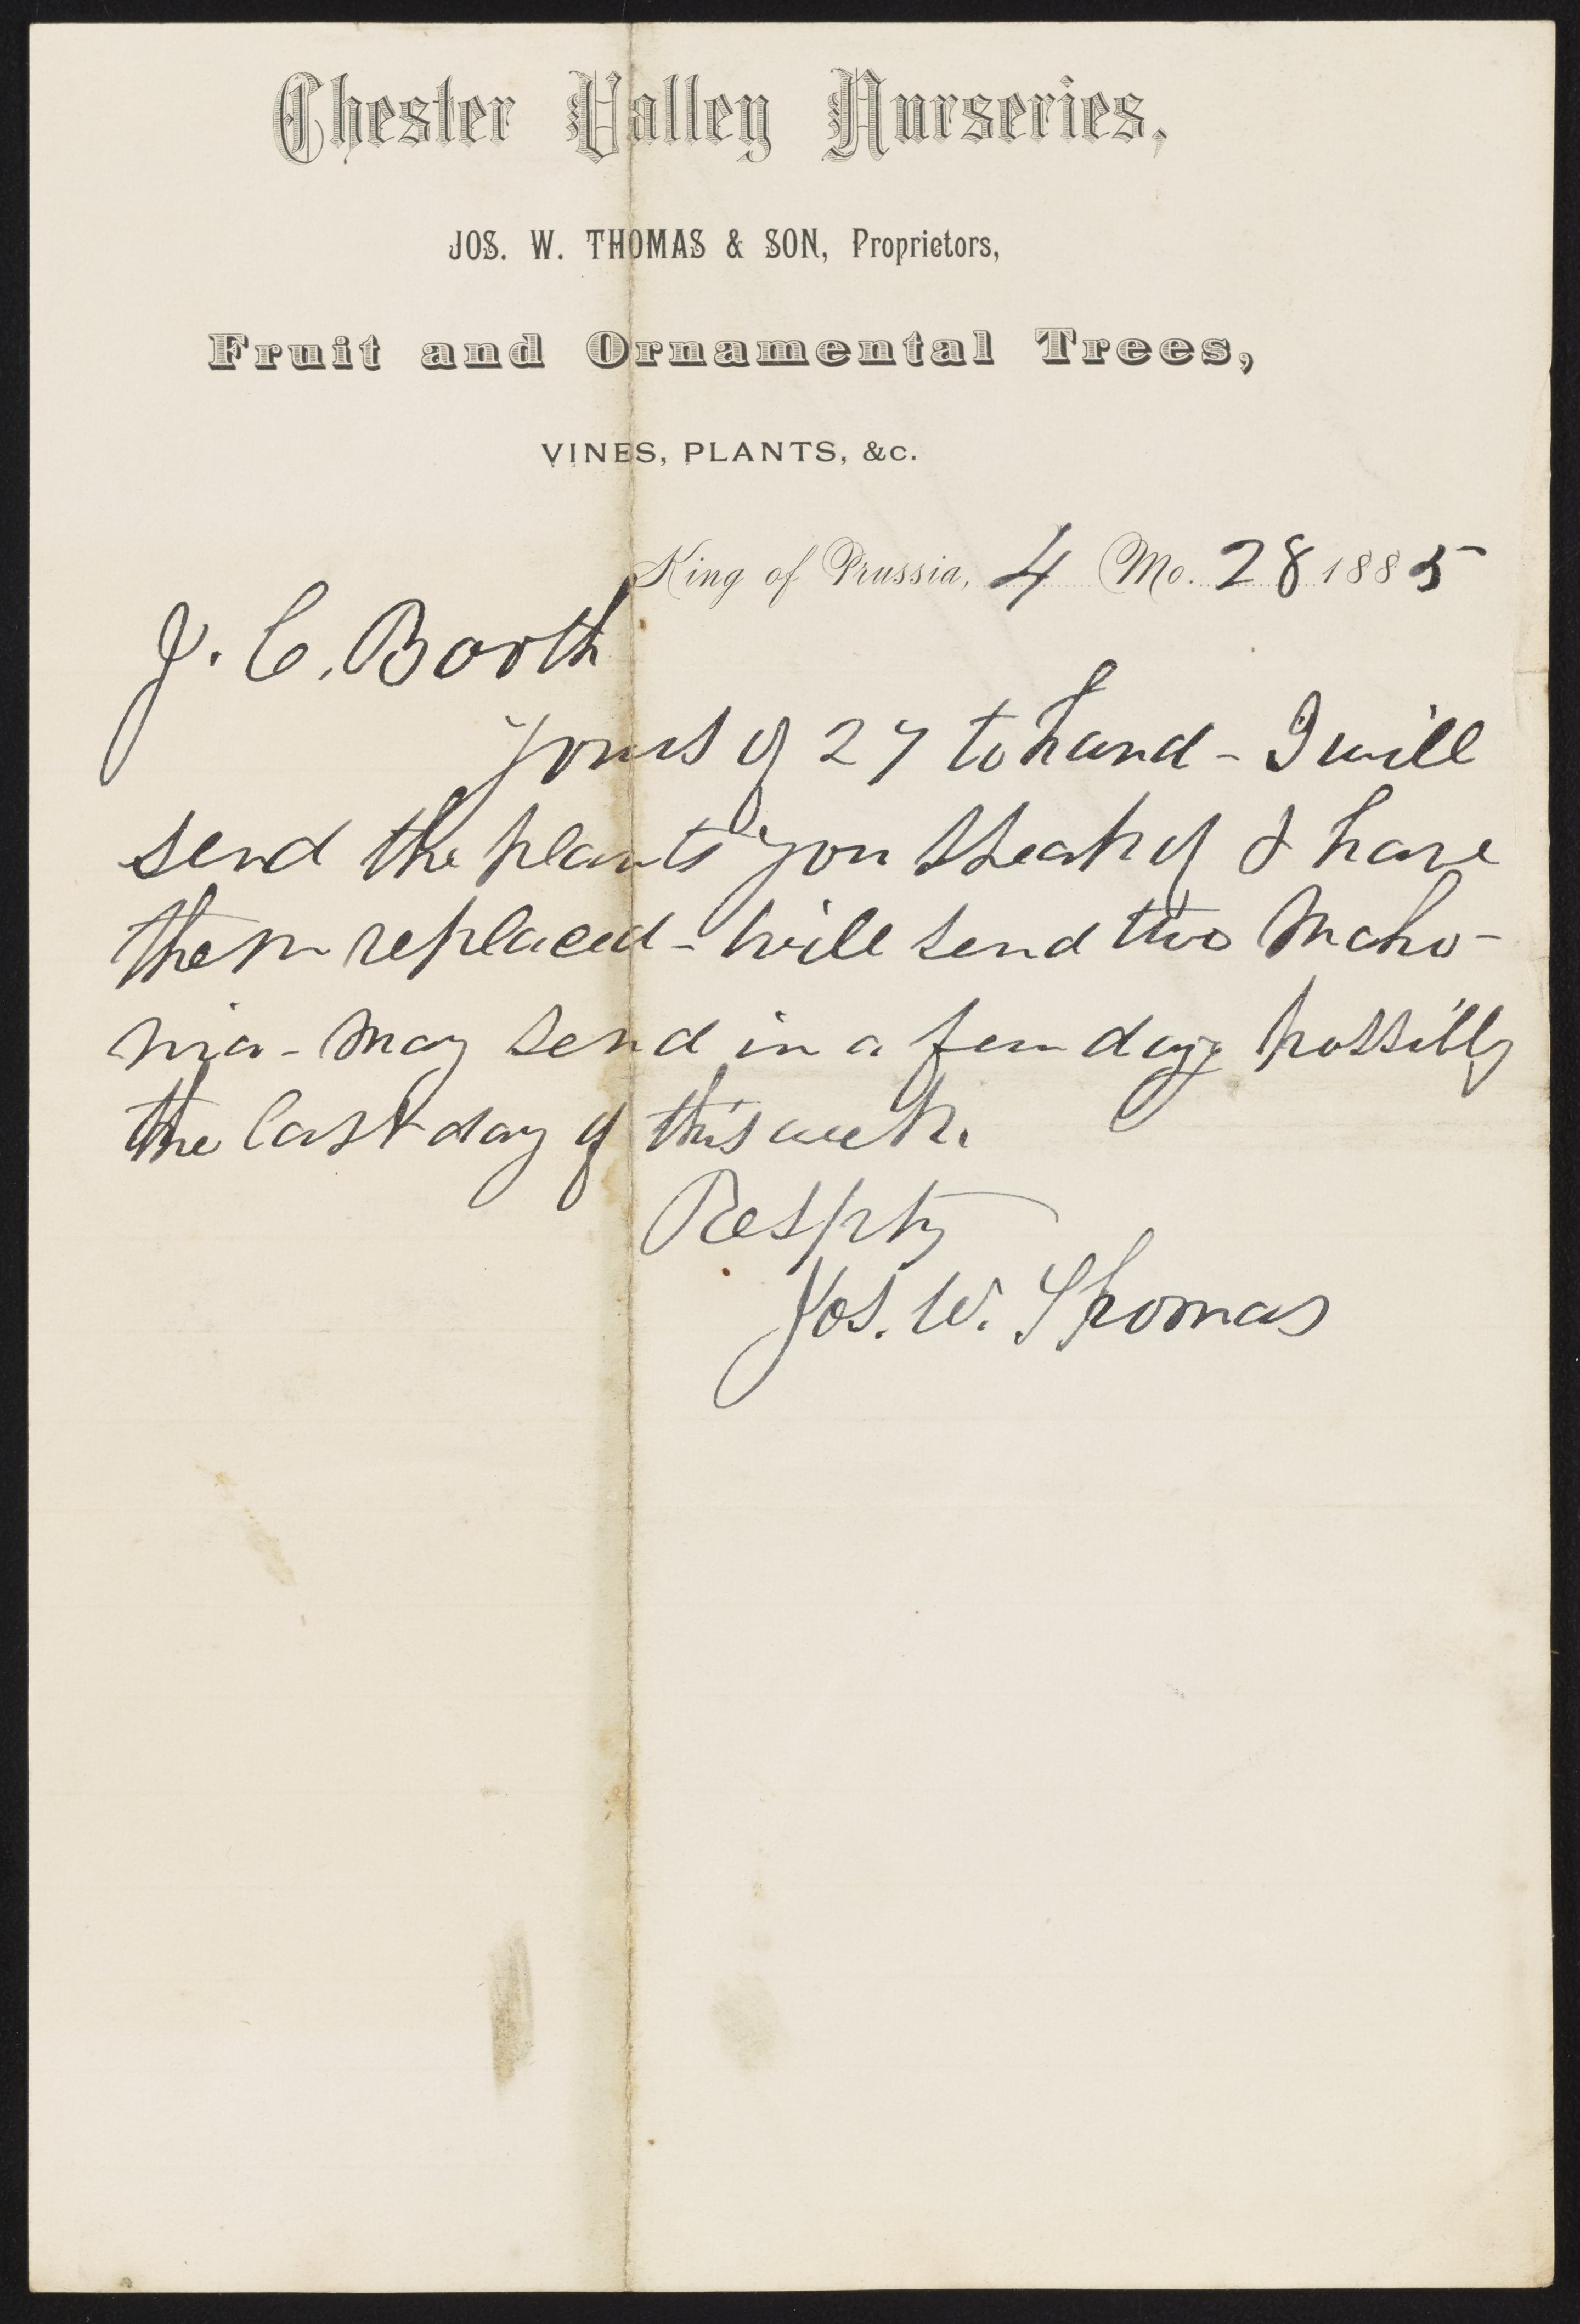 Chester Valley Nurseries,
JOS. W. THOMAS & SON, Proprietors,
Fruit and Ornamental Trees,
VINES, PLANTS, &c.
King of Prussia, 4 Mo. 28 1885
J. C. Booth
Yours of 27 to hand - I will
send the plants you speak of & have
them replaced - Will send two Maho-
nia - May send in a few days possibly
the last day of this week.
Respty
Jos. W. Thomas